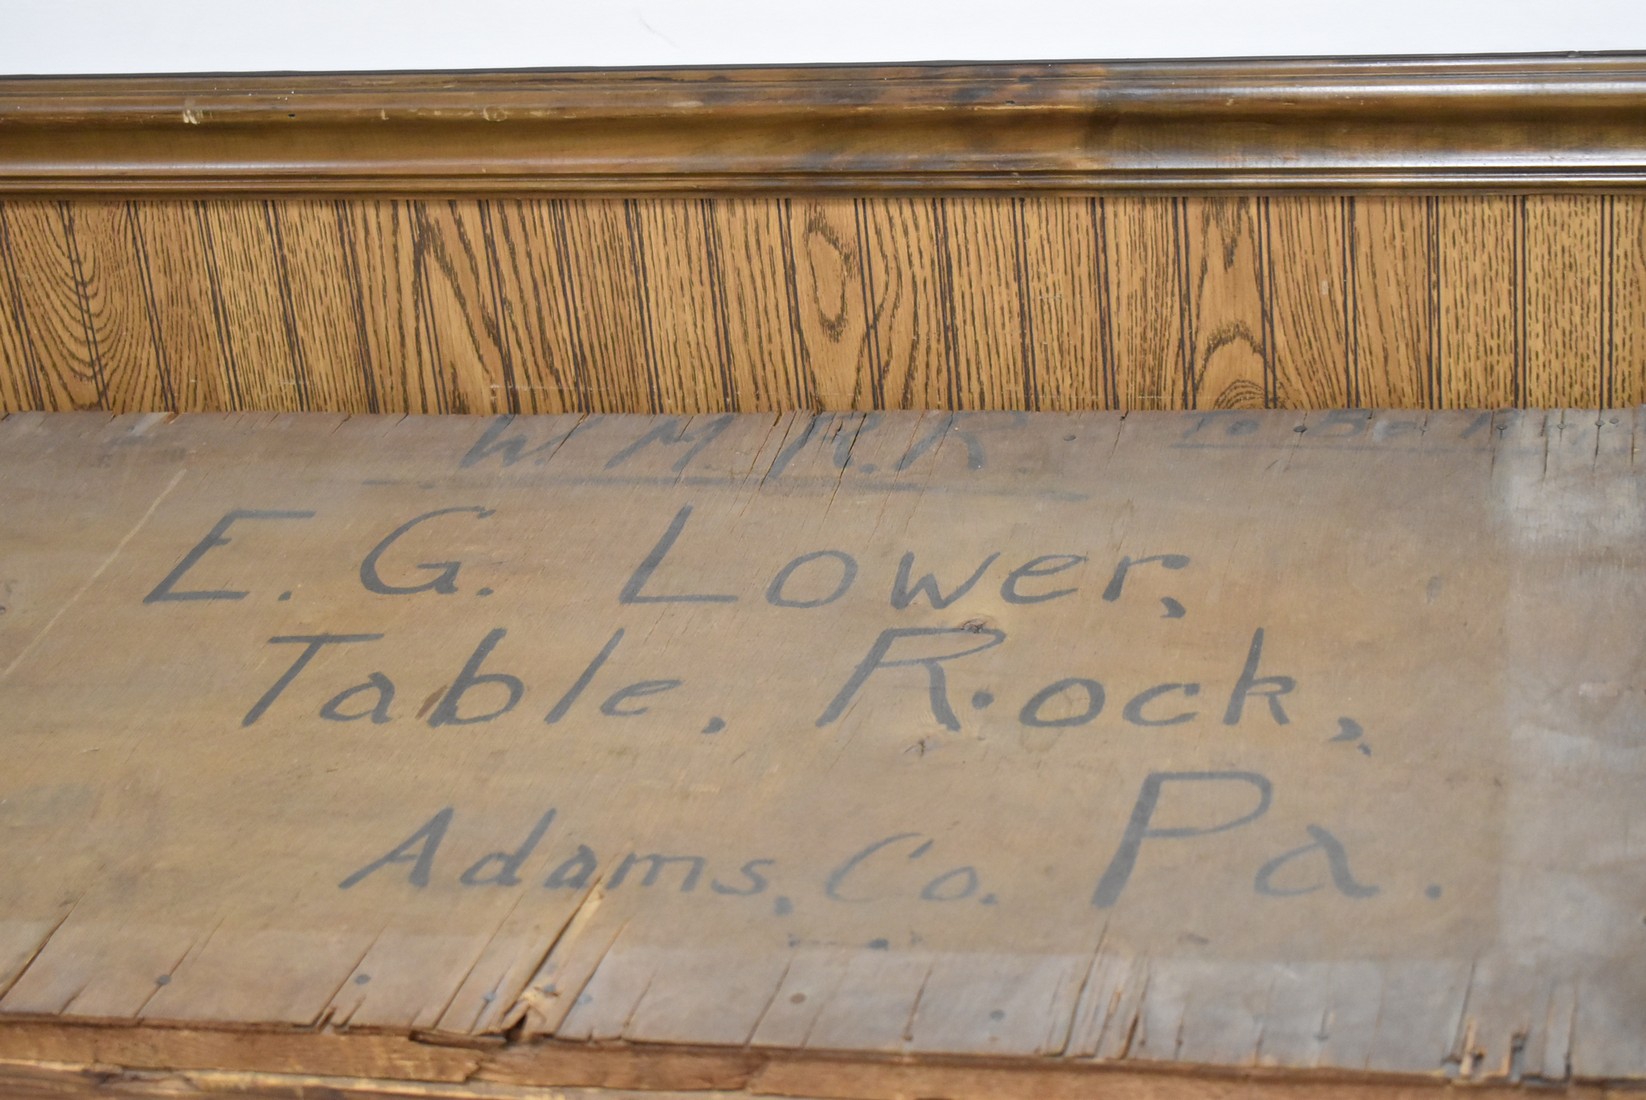 W. M. R. R. to
E. G. Lower,
Table, Rock,
Adams, Co. Pa.